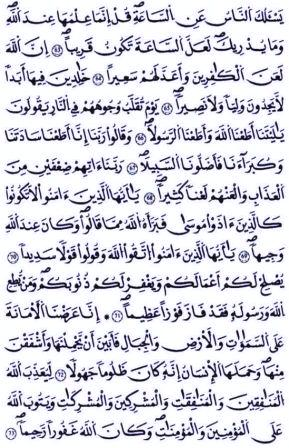 يَسْـَٔلُكَ ٱلنَّاسُ عَنِ ٱلسَّاعَةِ ۖ قُلْ إِنَّمَا عِلْمُهَا عِندَ ٱللَّهِ ۚ
وَمَا يُدْرِيكَ لَعَلَّ ٱلسَّاعَةَ تَكُونُ قَرِيبًا ۝٦٣ إِنَّ ٱللَّهَ
لَعَنَ ٱلْكَٰفِرِينَ وَأَعَدَّ لَهُمْ سَعِيرًا ۝٦٤ خَٰلِدِينَ فِيهَآ أَبَدًا ۖ
لَّا يَجِدُونَ وَلِيًّا وَلَا نَصِيرًا ۝٦٥ يَوْمَ تُقَلَّبُ وُجُوهُهُمْ فِى ٱلنَّارِ يَقُولُونَ
يَٰلَيْتَنَآ أَطَعْنَا ٱللَّهَ وَأَطَعْنَا ٱلرَّسُولَا۠ ۝٦٦ وَقَالُوا۟ رَبَّنَآ إِنَّآ أَطَعْنَا سَادَتَنَا
وَكُبَرَآءَنَا فَأَضَلُّونَا ٱلسَّبِيلَا۠ ۝٦٧ رَبَّنَآ ءَاتِهِمْ ضِعْفَيْنِ مِنَ
ٱلْعَذَابِ وَٱلْعَنْهُمْ لَعْنًا كَثِيرًا ۝٦٨ يَٰٓأَيُّهَا ٱلَّذِينَ ءَامَنُوا۟ لَا تَكُونُوا۟
كَٱلَّذِينَ ءَاذَوْا۟ مُوسَىٰ فَبَرَّأَهُ ٱللَّهُ مِمَّا قَالُوا۟ ۚ وَكَانَ عِندَ ٱللَّهِ
وَجِيهًا ۝٦٩ يَٰٓأَيُّهَا ٱلَّذِينَ ءَامَنُوا۟ ٱتَّقُوا۟ ٱللَّهَ وَقُولُوا۟ قَوْلًا سَدِيدًا ۝٧٠
يُصْلِحْ لَكُمْ أَعْمَٰلَكُمْ وَيَغْفِرْ لَكُمْ ذُنُوبَكُمْ ۗ وَمَن يُطِعِ
ٱللَّهَ وَرَسُولَهُۥ فَقَدْ فَازَ فَوْزًا عَظِيمًا ۝٧١ إِنَّا عَرَضْنَا ٱلْأَمَانَةَ
عَلَى ٱلسَّمَٰوَٰتِ وَٱلْأَرْضِ وَٱلْجِبَالِ فَأَبَيْنَ أَن يَحْمِلْنَهَا وَأَشْفَقْنَ
مِنْهَا وَحَمَلَهَا ٱلْإِنسَٰنُ ۖ إِنَّهُۥ كَانَ ظَلُومًا جَهُولًا ۝٧٢ لِّيُعَذِّبَ ٱللَّهُ
ٱلْمُنَٰفِقِينَ وَٱلْمُنَٰفِقَٰتِ وَٱلْمُشْرِكِينَ وَٱلْمُشْرِكَٰتِ وَيَتُوبَ ٱللَّهُ
عَلَى ٱلْمُؤْمِنِينَ وَٱلْمُؤْمِنَٰتِ ۗ وَكَانَ ٱللَّهُ غَفُورًا رَّحِيمًا ۝٧٣